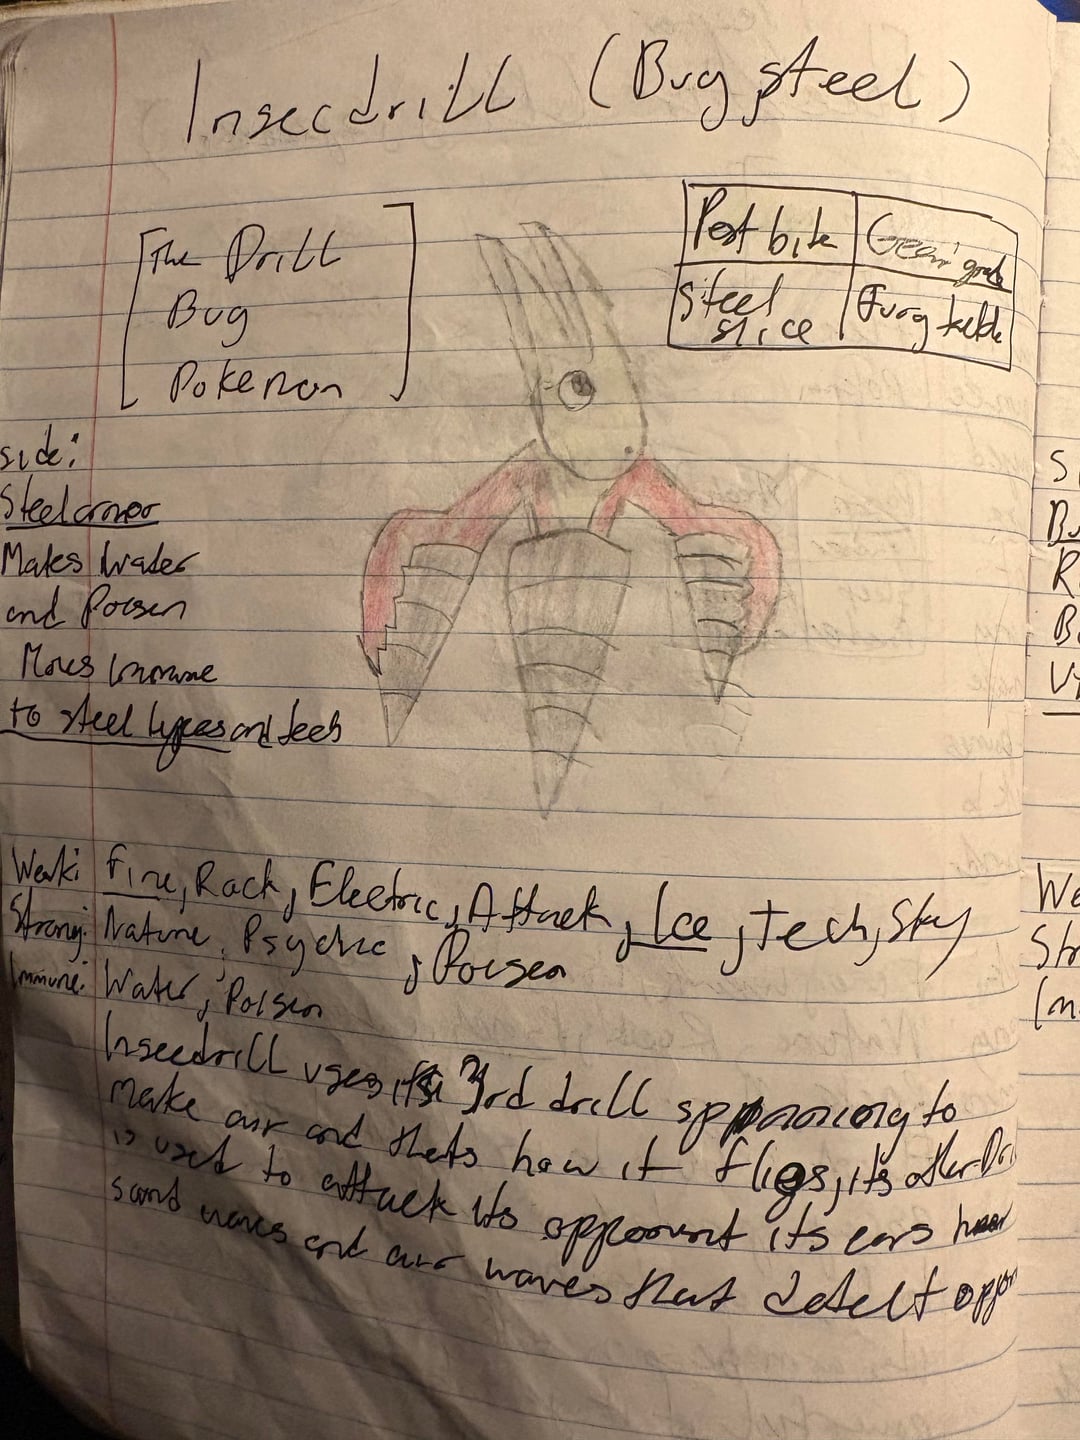 Insecdrill (Bug, steel)
The Drill
Bug
Pokemon
Pest bite
Steel
slice
side:
Steel armor
Makes water
and Poisen
Moves immune
to steel types and
Weak: Fire, Rock, Electric, Attack, Ice, Tech, Sky
Strong: Nature, Psychic, Poisen
Immune: Water, Poisen
Insecdrill uses its 3rd drill to
make air and thats how it flies, its other
is used to attack its its ears hear
sound waves and air waves that detect
S
R
We
Str
Im